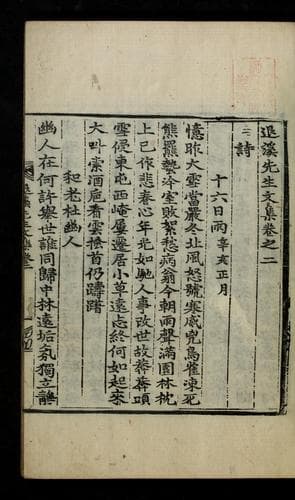 退溪先生文集卷之二
詩
十六日雨 辛亥正月
憶昨大雪當嚴冬北風怒號寒威兇鳥雀凍死
熊羆蟄冷室敗絮愁病翁今朝雨聲滿園林枕
上已作悲春心年光如馳人事改世故莽莽頭
雪侵東屯西崦屢遷居小草遠志終何如起來
大叫索酒巵看雲搔首仍躊躇
和老杜幽人
幽人在何許擧世誰同歸中林遠垢氛獨立無